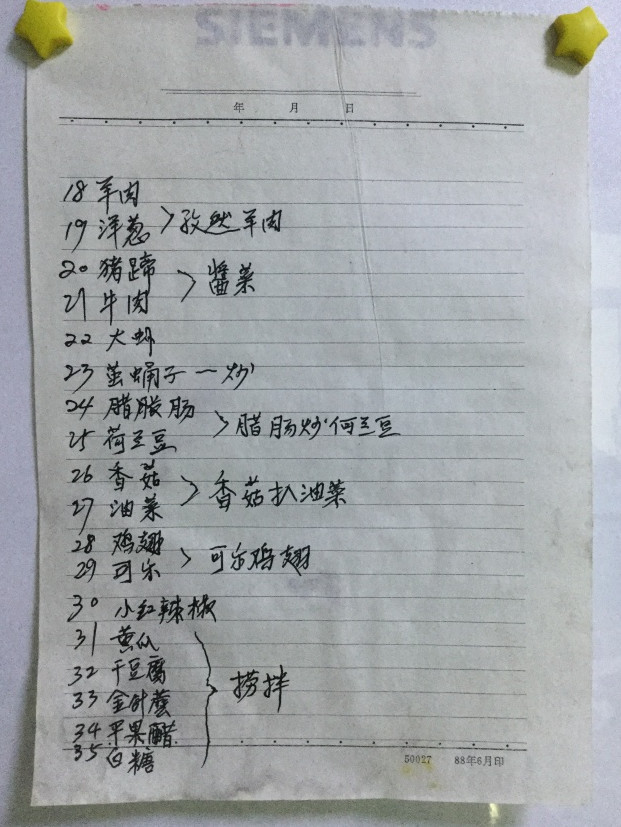 SIEMENS
年 月 日
18 羊肉
19 洋葱 > 孜然羊肉
20 猪蹄
21 牛肉 > 醬菜
22 大虾
23 茧蛹子 一 炒
24 腊腊肠
25 荷兰豆 > 腊肠炒何兰豆
26 香菇
27 油菜 > 香菇扒油菜
28 鸡翅
29 可乐 > 可乐鸡翅
30 小红辣椒
31 黄瓜
32 干豆腐
33 金针蘑 } 捞拌
34 平果醋
35 白糖
50027 88年6月印